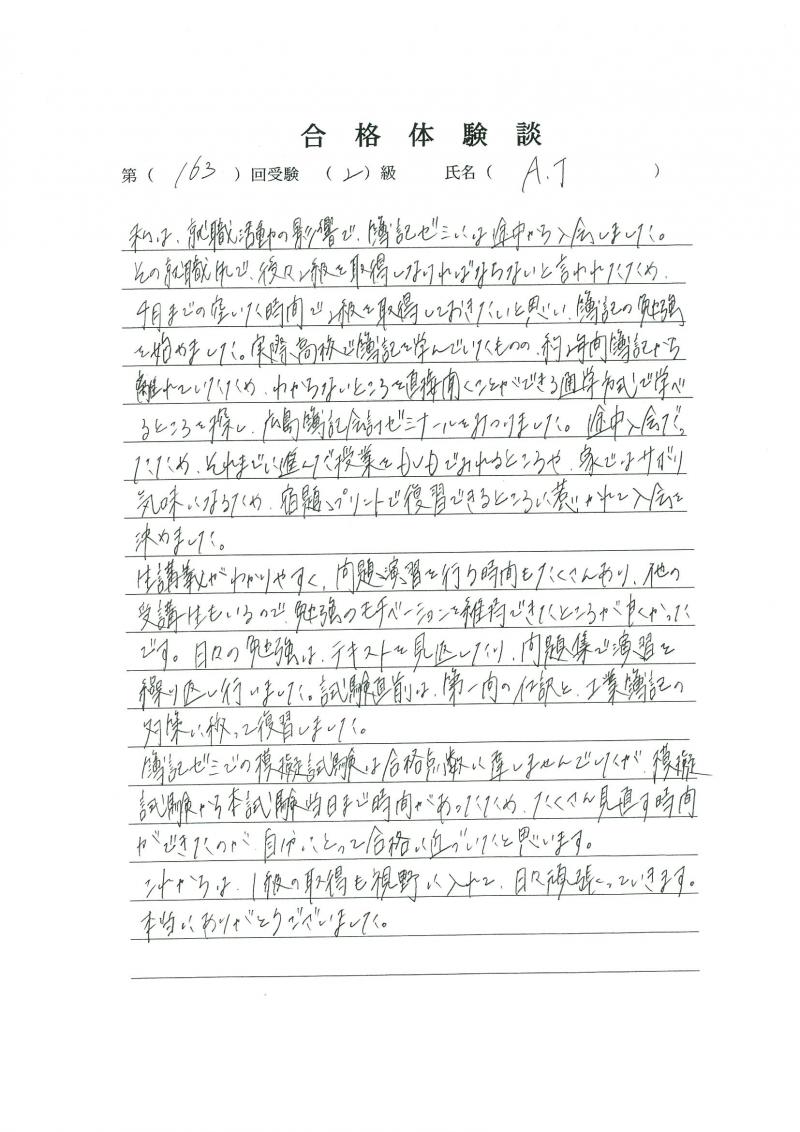 合格体験談
第（ 163 ）回受験 （ 2 ）級 氏名（ A.T ）
私は、就職活動の影響で、簿記ゼミには途中から入会しました。
その就職先で、後々2級を取得しなければならないと言われたため、
4月までの空いた時間で2級を取得しておきたいと思い、簿記の勉強
を始めました。実際、高校で簿記を学んでいたものの、約2年間簿記から
離れていたため、わからないところを直接聞くことができる通学方式で学べ
るところを探し、広島簿記会計ゼミナールをみつけました。途中入会だっ
たため、それまでに進んだ授業をDVDでみれるところや、家ではサボり
気味になるため、宿題プリントで復習できるところに惹かれて入会を
決めました。
生講義がわかりやすく、問題演習を行う時間もたくさんあり、他の
受講生もいるので、勉強のモチベーションを維持できたところが良かった
です。日々の勉強は、テキストを見返したり、問題集で演習を
繰り返し行いました。試験直前は、第一問の仕訳と、工業簿記の
対策に絞って復習しました。
簿記ゼミでの模擬試験は合格点数に達しませんでしたが、模擬
試験から本試験当日まで時間があったため、たくさん見直す時間
ができたのが、自分にとって合格に近づいたと思います。
これからは、1級の取得も視野に入れて、日々頑張っていきます。
本当にありがとうございました。